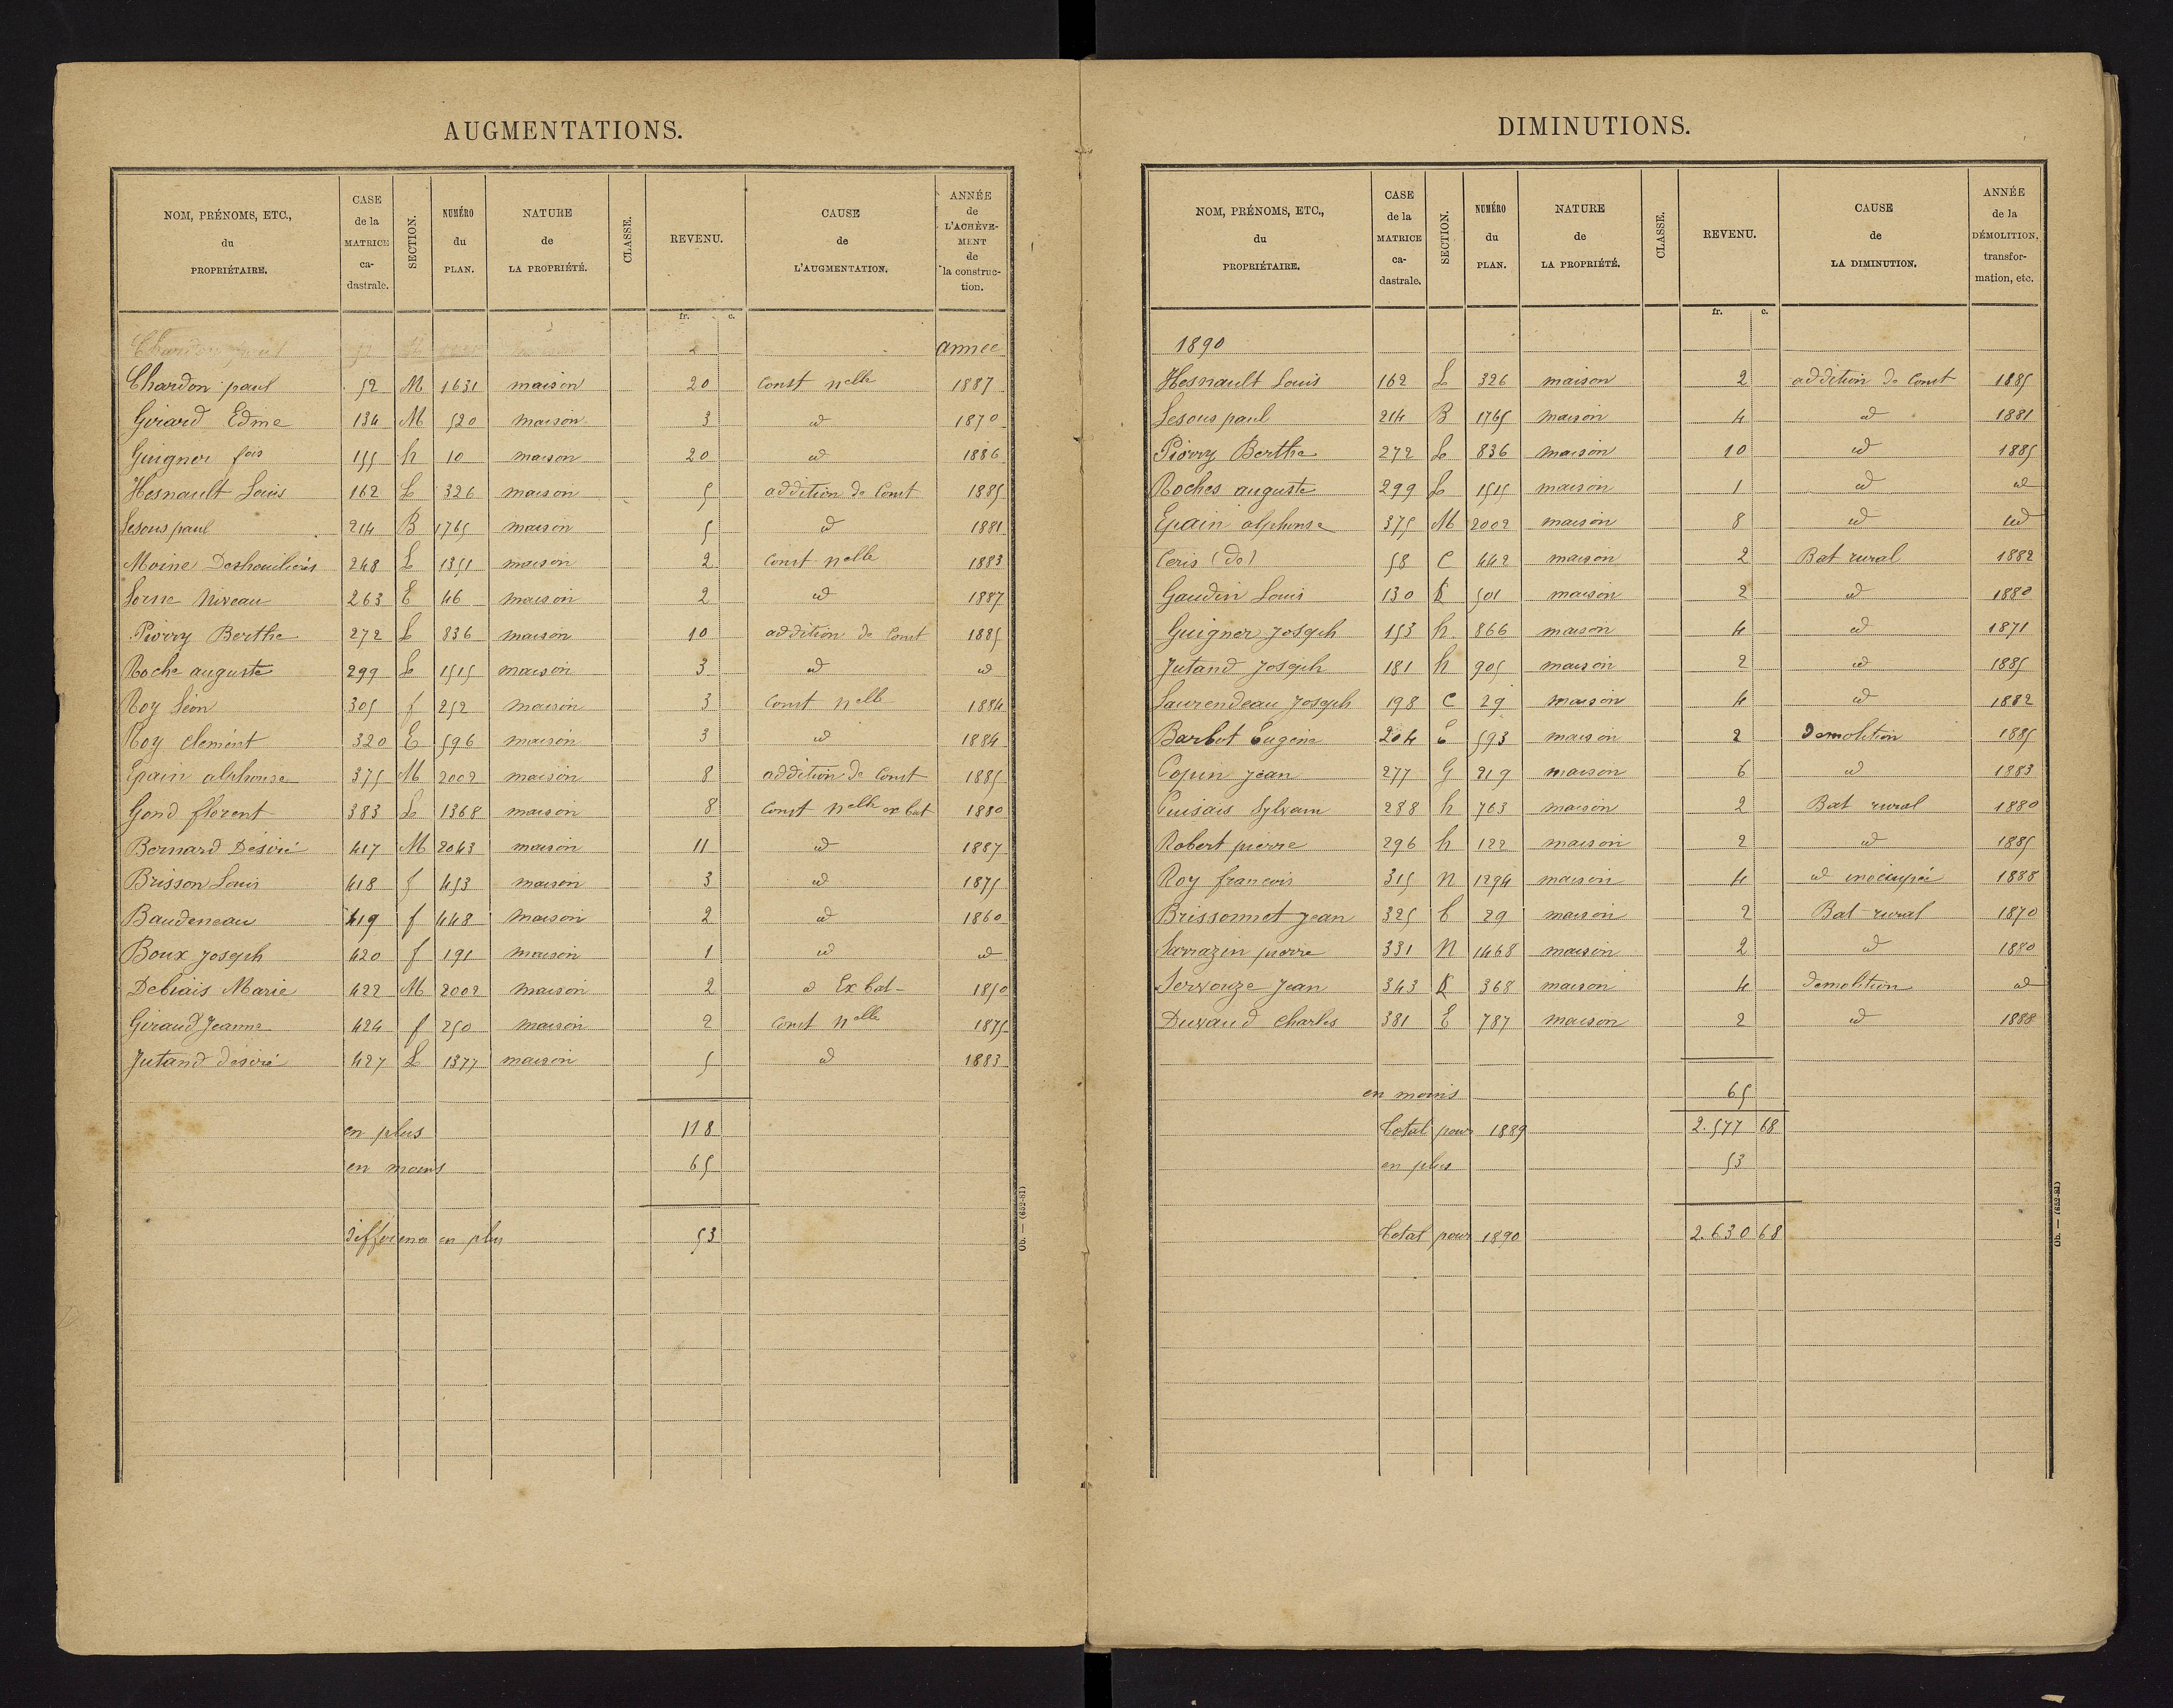 AUGMENTATIONS.
NOM, PRÉNOMS, ETC., du PROPRIÉTAIRE. CASE de la MATRICE ca-dastrale. SECTION. NUMÉRO du PLAN. NATURE de LA PROPRIÉTÉ. CLASSE. REVENU. CAUSE de L'AUGMENTATION. ANNÉE de L'ACHÈVE-MENT de la construc-tion.
fr. c.
Chardon paul 52 M 2 annee
Chardon paul 52 M 1631 maison 20 Const nelle 1887
Girard Edme 134 M 520 maison 3 id 1870
Guignou fois 155 h 10 maison 20 id 1886
Hesnault Louis 162 L 326 maison 5 addition de Const 1885
Lesous paul 214 B 1765 maison 5 id 1881
Moine Deshoulières 248 L 1351 maison 2 Const nelle 1883
Niveau 263 E 46 maison 2 id 1887
Piorry Berthe 272 L 836 maison 10 addition de Const 1885
Roche auguste 299 L 1515 maison 3 id id
Roy Léon 305 f 252 maison 3 Const nelle 1884
Roy clement 320 E 596 maison 3 id 1884
Epain alphonse 375 M 2002 maison 8 addition de Const 1885
Gond florent 383 L 1368 maison 8 Const nelle ex bat 1880
Bernard Désiré 417 M 2043 maison 11 id 1887
Brisson Louis 418 f 453 maison 3 id 1875
Baudeneau 419 f 448 maison 2 id 1860
Boux Joseph 420 f 191 maison 1 id id
Debiais Marie 422 M 2002 maison 2 id Ex bat- 1850
Giraud Jeanne 424 f 250 maison 2 Const nelle 1875
Jutand désiré 427 L 1377 maison 5 id 1883
en plus 118
en moins 65
différence en plus 53
Ob. — (652-81)
DIMINUTIONS.
NOM, PRÉNOMS, ETC., du PROPRIÉTAIRE. CASE de la MATRICE ca-dastrale. SECTION. NUMÉRO du PLAN. NATURE de LA PROPRIÉTÉ. CLASSE. REVENU. CAUSE de LA DIMINUTION. ANNÉE de la DÉMOLITION, transfor-mation, etc.
fr. c.
1890
Hesnault Louis 162 L 326 maison 2 addition de Const 1885
Lesous paul 214 B 1765 maison 4 id 1881
Piorry Berthe 272 L 836 maison 10 id 1885
Roches auguste 299 L 1515 maison 1 id id
Epain alphonse 375 M 2002 maison 8 id id
Ceris (de) 58 C 442 maison 2 Bat rural 1882
Gaudin Louis 130 K 501 maison 2 id 1880
Guigner Joseph 153 h 866 maison 4 id 1871
Jutand Joseph 181 h 905 maison 2 id 1885
Laurendeau Joseph 198 C 29 maison 4 id 1882
Barbot Eugène 204 E 593 maison 2 Demolition 1885
Copin Jean 277 G 219 maison 6 id 1883
Puisais Sylvain 288 h 763 maison 2 Bat rural 1880
Robert pierre 296 h 122 maison 2 id 1885
Roy francois 315 N 1294 maison 4 id inocupée 1888
Brissonnet Jean 325 C 29 maison 2 Bat rural 1870
Sarrazin pierre 331 N 1468 maison 2 id 1880
Servouze Jean 343 K 368 maison 4 demolition id
Durand Charles 381 E 787 maison 2 id 1888
en moins 65
Total pour 1889 2.577 68
en plus 53
Total pour 1890 2.630 68
Ob. — (652-81)